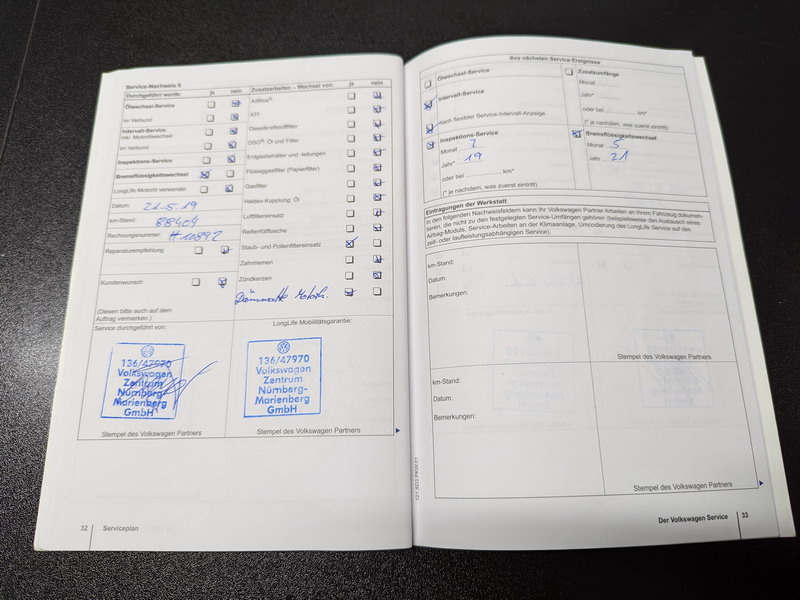 Service-Nachweis 9
Durchgeführt wurde: ja nein
Ölwechsel-Service
Im Verbund
Intervall-Service
inkl. Motorölwechsel
Im Verbund
Inspektions-Service
Bremsflüssigkeitswechsel
LongLife Motoröl verwendet
Datum: 21.5.19
km-Stand: 88404
Rechnungsnummer: #10892
Reparaturempfehlung
Kundenwunsch
(Diesen bitte auch auf dem
Auftrag vermerken.)
Zusatzarbeiten – Wechsel von: ja nein
AdBlue®
ATF
Dieselkraftstofffilter
DSG®: Öl und Filter
Erdgasbehälter und -leitungen
Flüssiggasfilter (Papierfilter)
Gasfilter
Haldex-Kupplung: Öl
Luftfiltereinsatz
Reifenfüllflasche
Staub- und Pollenfiltereinsatz
Zahnriemen
Zündkerzen
Service durchgeführt von:
136/47970
Volkswagen
Zentrum
Nürnberg-
Marienberg
GmbH
Stempel des Volkswagen Partners
LongLife Mobilitätsgarantie:
136/47970
Volkswagen
Zentrum
Nürnberg-
Marienberg
GmbH
Stempel des Volkswagen Partners
32 Serviceplan
Ihre nächsten Service-Ereignisse
Ölwechsel-Service
Intervall-Service
nach flexibler Service-Intervall-Anzeige
Inspektions-Service
Monat 7
Jahr* 19
oder bei km*
(* je nachdem, was zuerst eintritt)
Zusatzumfänge
Monat
Jahr*
oder bei km*
(* je nachdem, was zuerst eintritt)
Bremsflüssigkeitswechsel
Monat 5
Jahr 21
Eintragungen der Werkstatt
In den folgenden Nachweisfeldern kann Ihr Volkswagen Partner Arbeiten an Ihrem Fahrzeug dokumen-
tieren, die nicht zu den festgelegten Service-Umfängen gehören (beispielsweise den Austausch eines
Airbag-Moduls, Service-Arbeiten an der Klimaanlage, Umcodierung des LongLife Service auf den
zeit- oder laufleistungsabhängigen Service).
km-Stand:
Datum:
Bemerkungen:
Stempel des Volkswagen Partners
km-Stand:
Datum:
Bemerkungen:
Stempel des Volkswagen Partners
121.5D3.PKW.01
Der Volkswagen Service 33